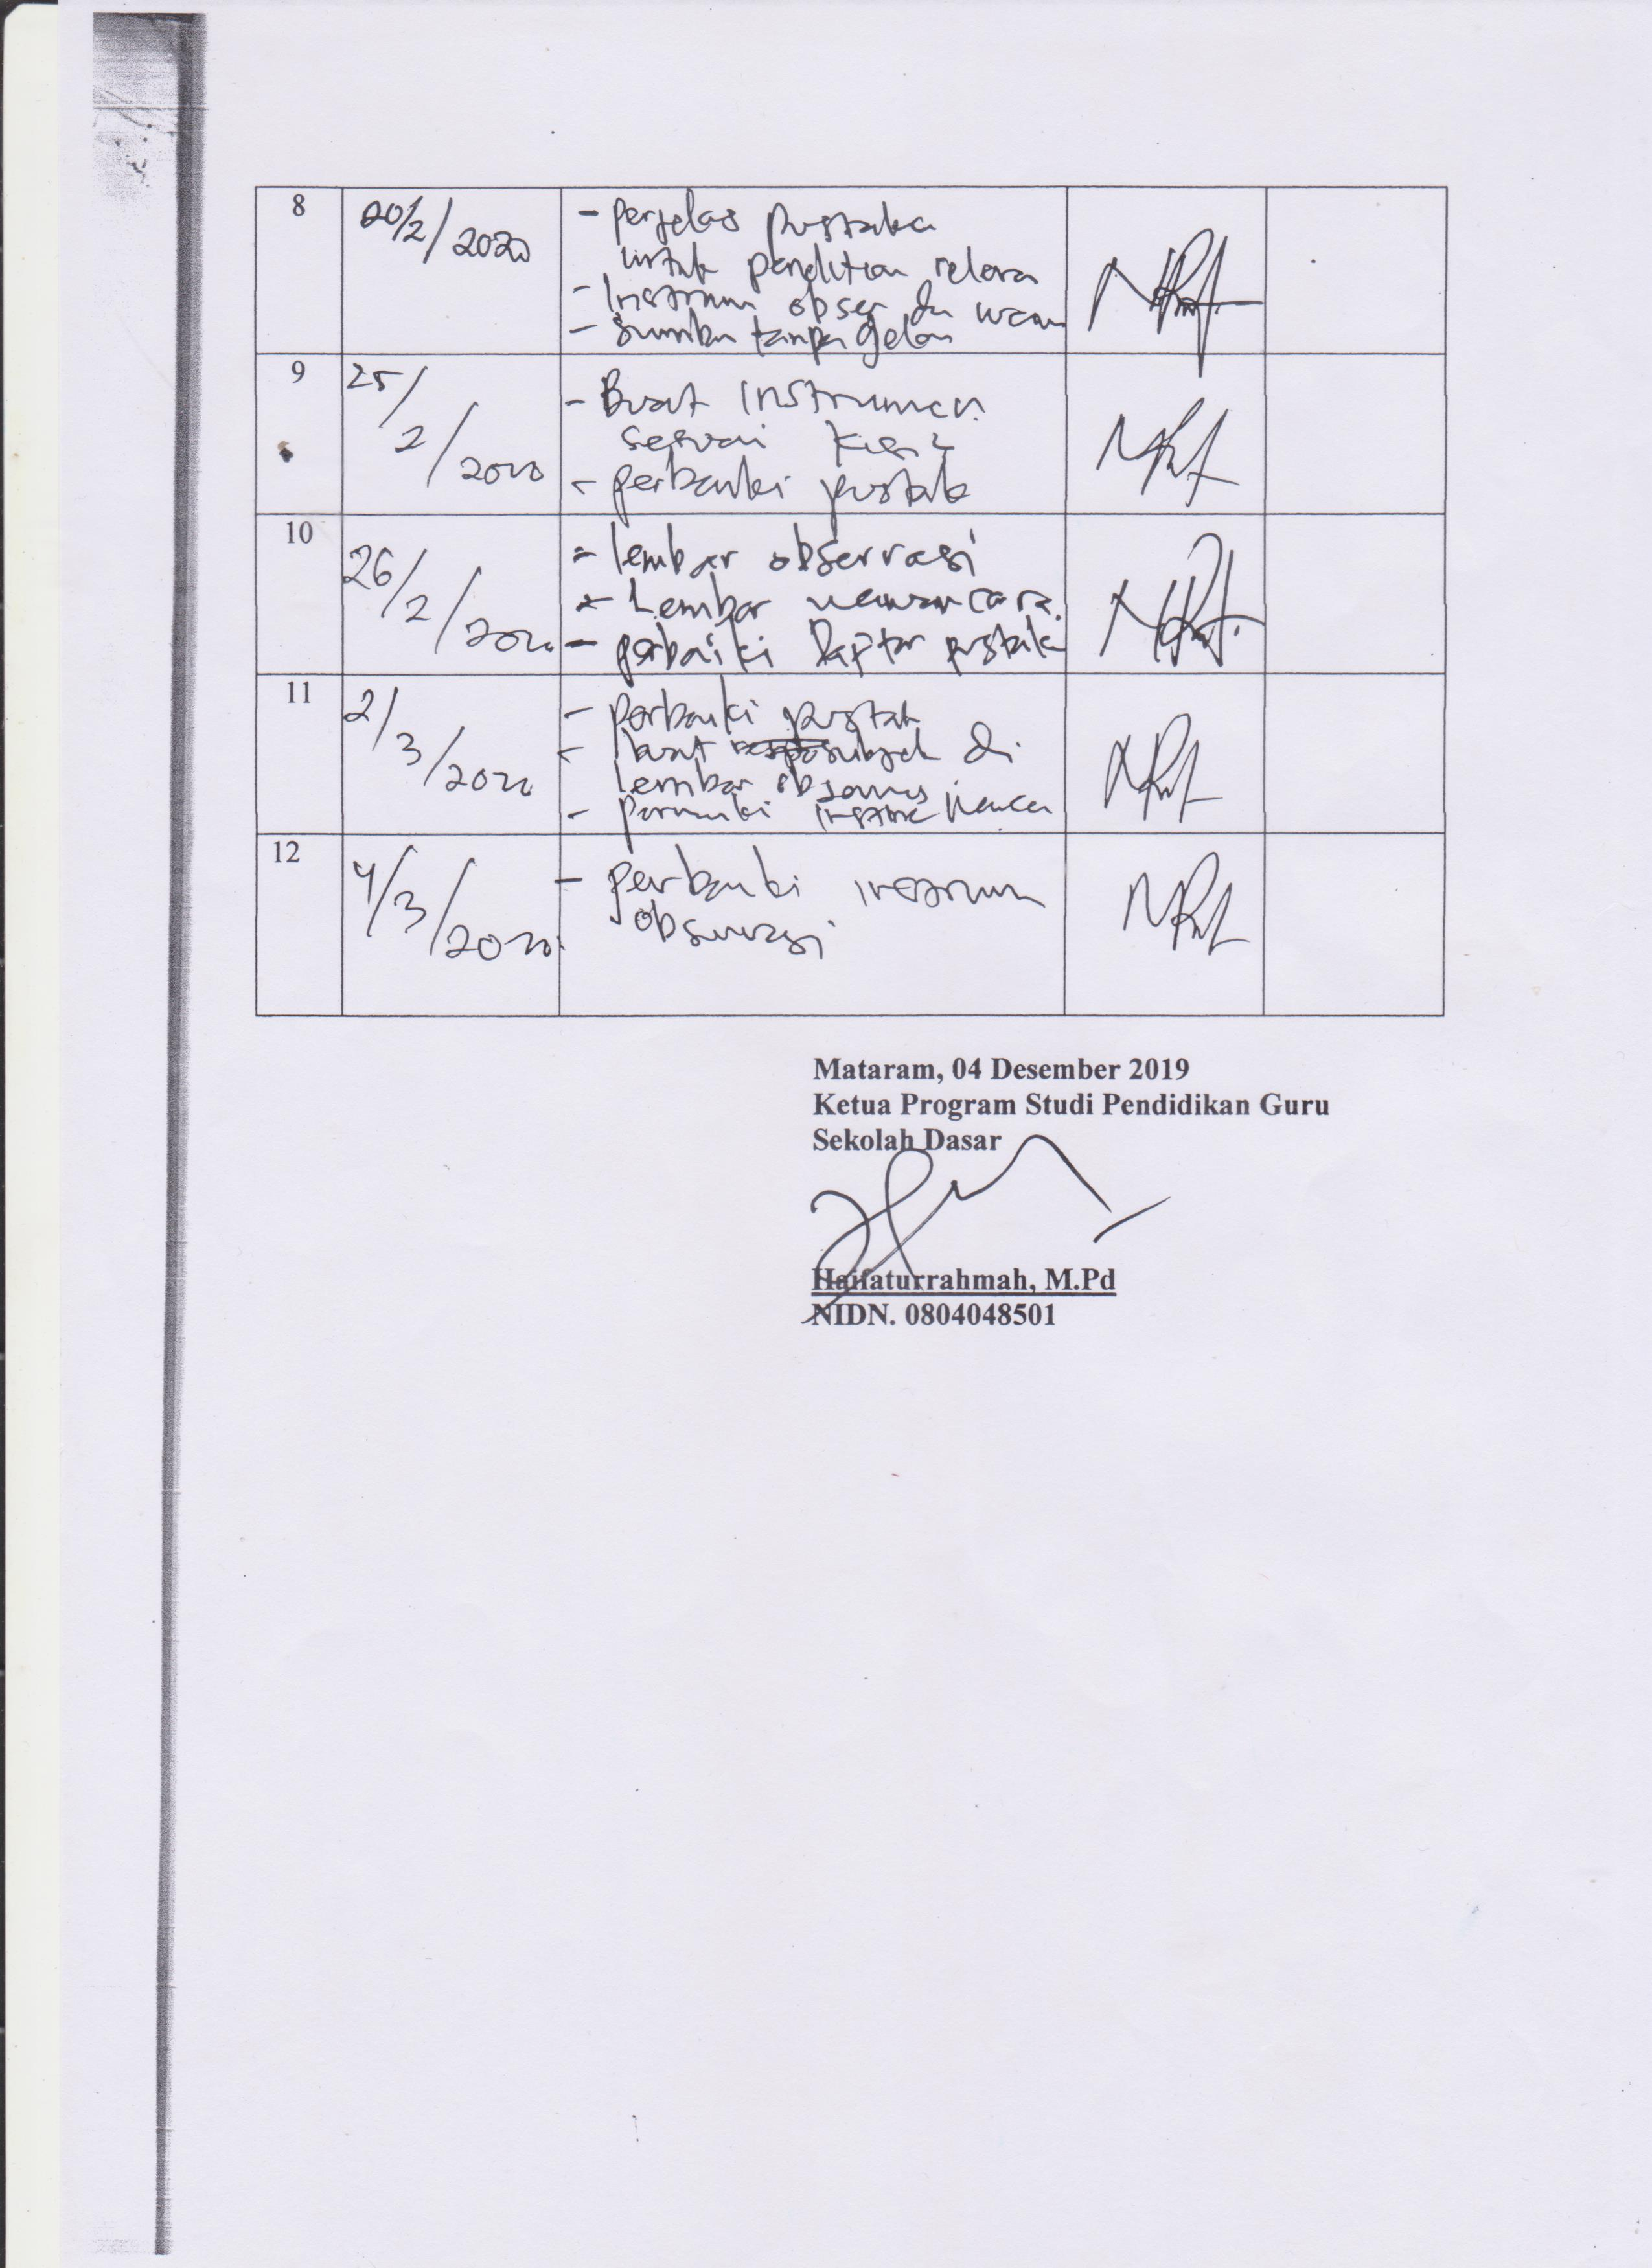 8
20/2/2020
- perjelas pustaka
untuk penelitian relevan
- Instrum obser dan wawan
- Sumber tanpa gelar
9
25/2/2020
- Buat instrumen
sesuai kisi2
- perbaiki pustak
10
26/2/2020
- lembar observasi
- Lembar wawancara
- perbaiki Daptar pustak
11
2/3/2020
- perbaiki pustak
- buat subjek di
lembar observasi
-
12
4/3/2020
- perbaiki instrum
observasi
Mataram, 04 Desember 2019
Ketua Program Studi Pendidikan Guru
Sekolah Dasar
Haifaturrahmah, M.Pd
NIDN. 0804048501